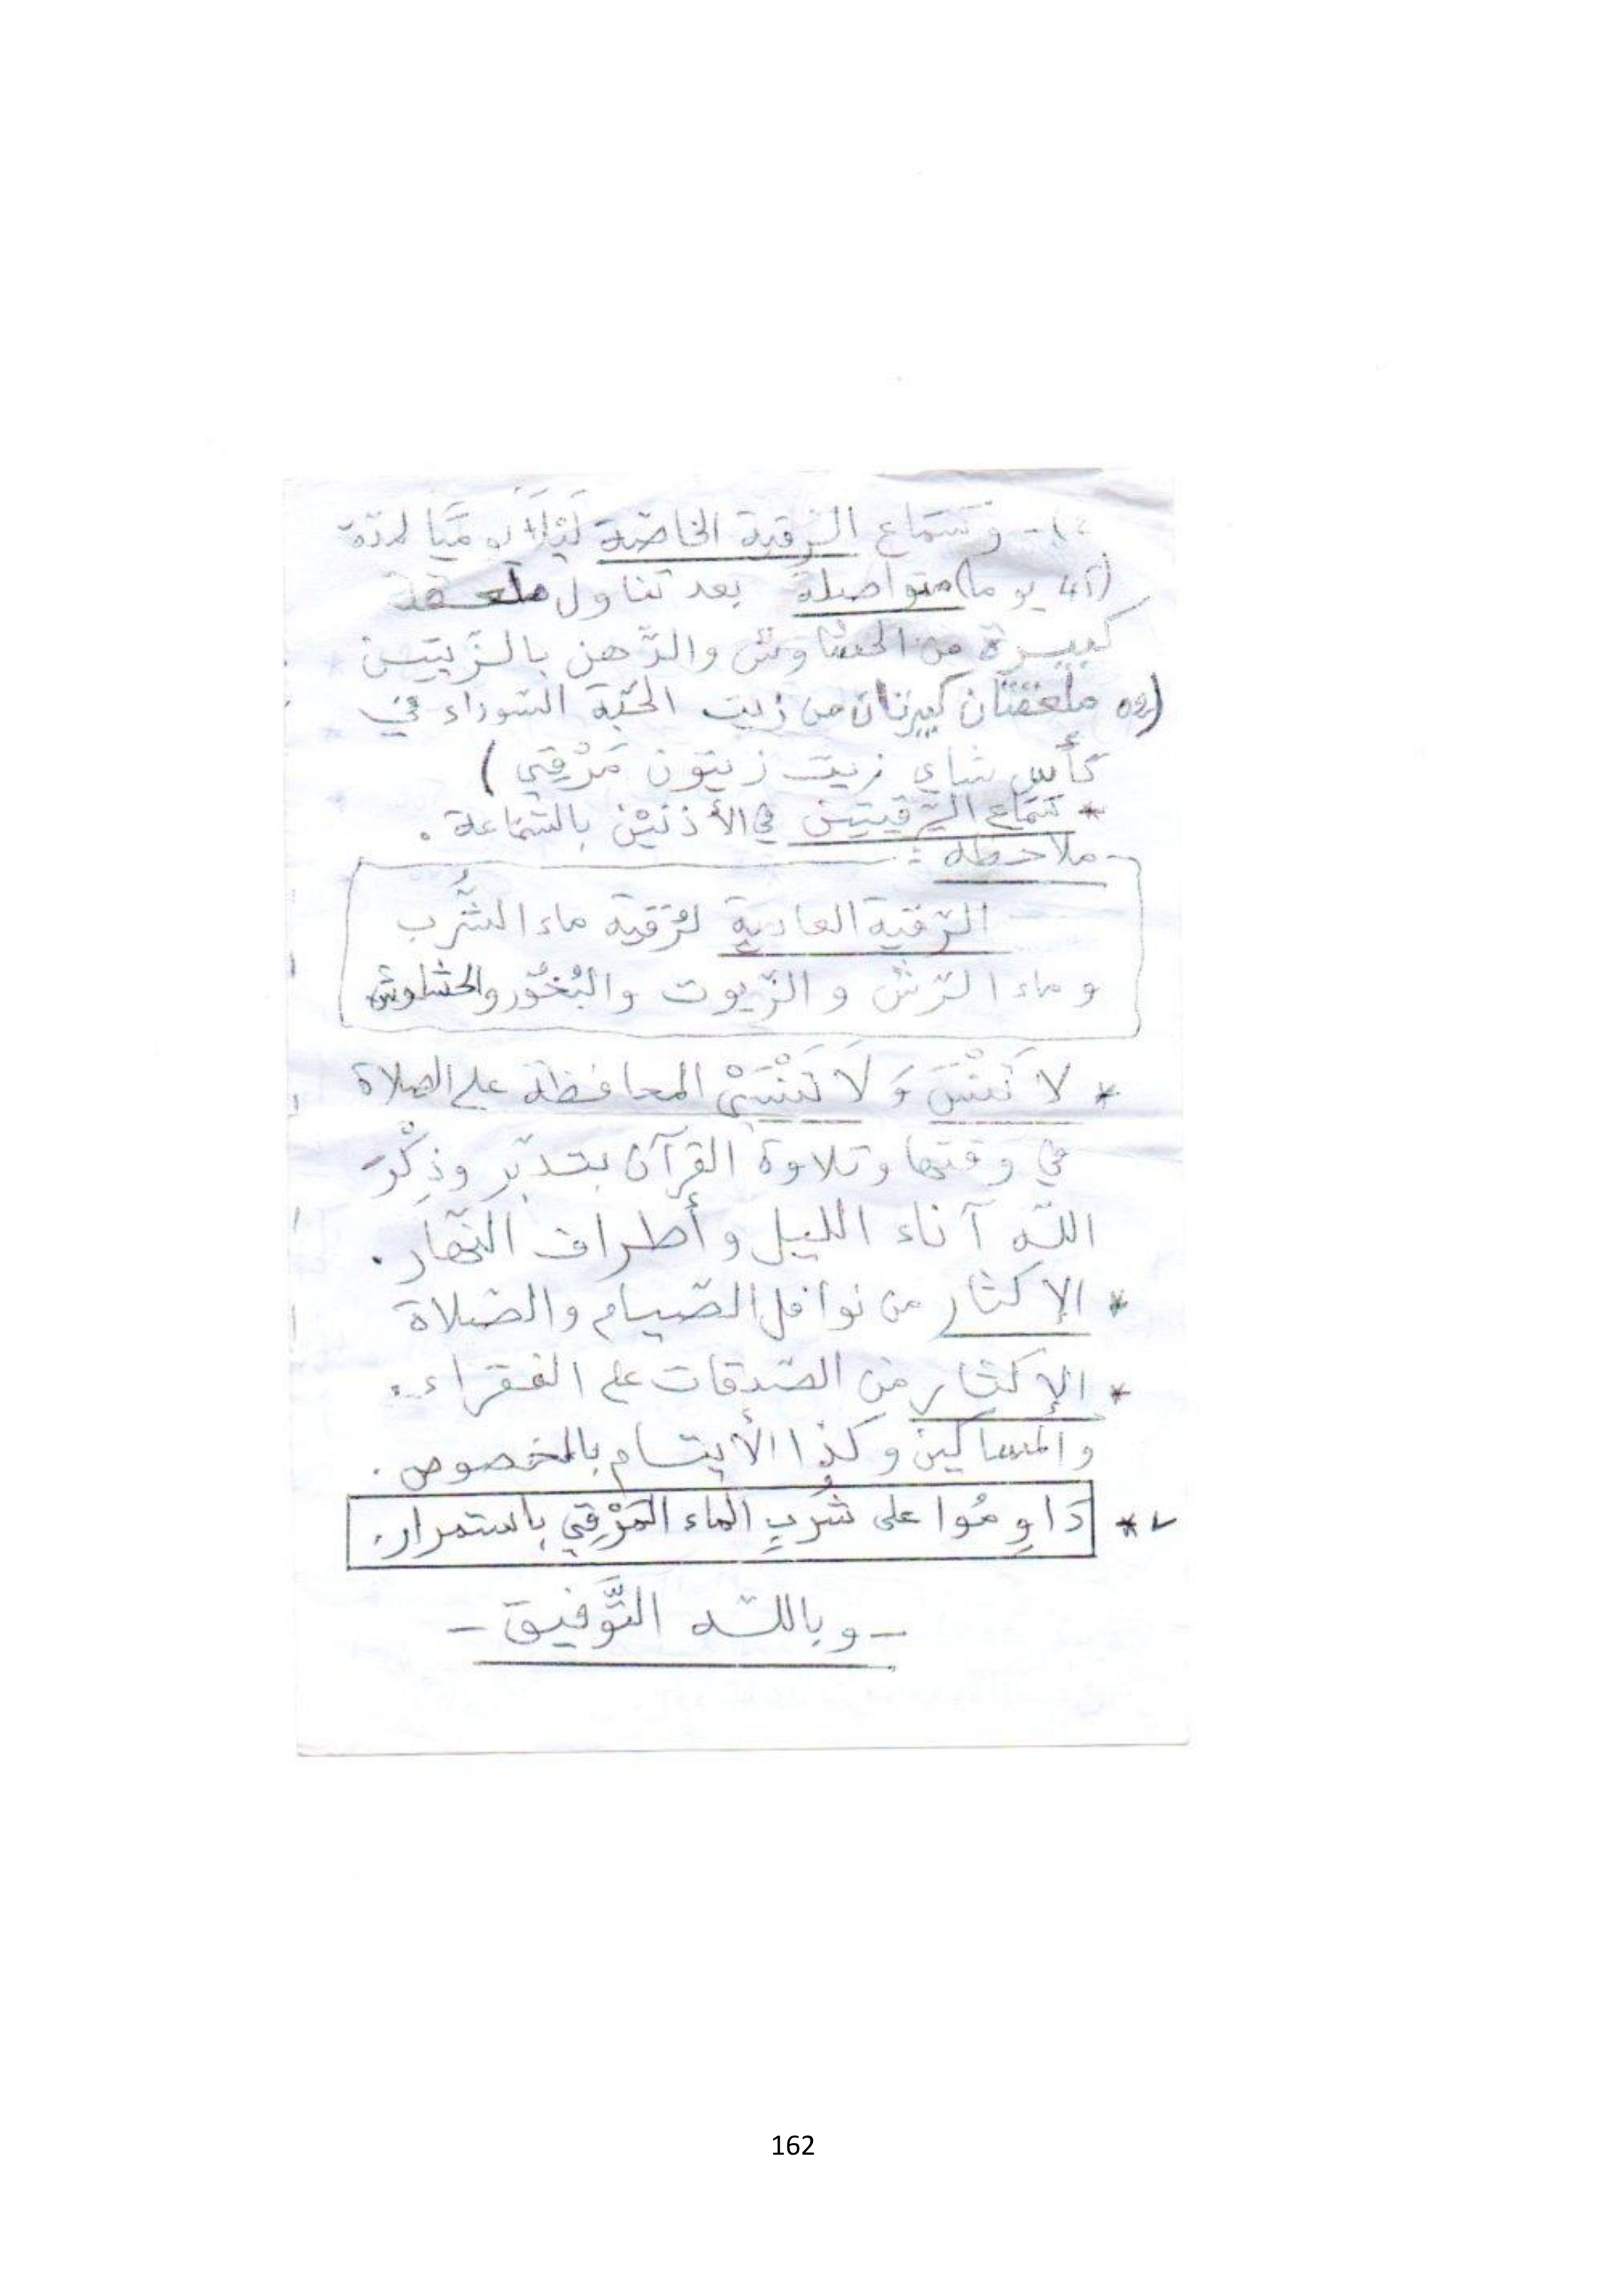 - وتسّمّاع الرّقية الخاصّة لَيْلًا يوميًّا لمدّة
(45 يوما) متواصلة بعد تناول ملعـقة
كبيـرة من الحشاوش والدّهن بالزّيتيـن
(02 ملعقتان كبيرتان من زيت الحبّة السّوداء في
كأس شاي زيت زيتون مَرْقِي)
* تسّمّاع الرّقيتين في الأذنيْن بالسّمّاعة .
ملاحظة :
الرّقية العادية لرُقية ماء الشُّرب
و ماء الرّشّ و الزّيوت والبُخّور والحشاوش
* لا تَنْسَ وَ لَا تَنْسَيْ المحافظة على الصلاة
في وقتها وتلاوة القرآن بتدبّر وذِكْر
اللّه آناء الليل وأطراف النّهار .
* الإكثار من نوافل الصّيام والصّلاة
* الإكثار من الصّدقات على الفقراء .
والمساكين وكذا الأيتـام بالخصوص .
* دَاوِمُوا على شُربِ الماء المَرْقِي باستمرار.
- وباللّه التَّوفيق -
162